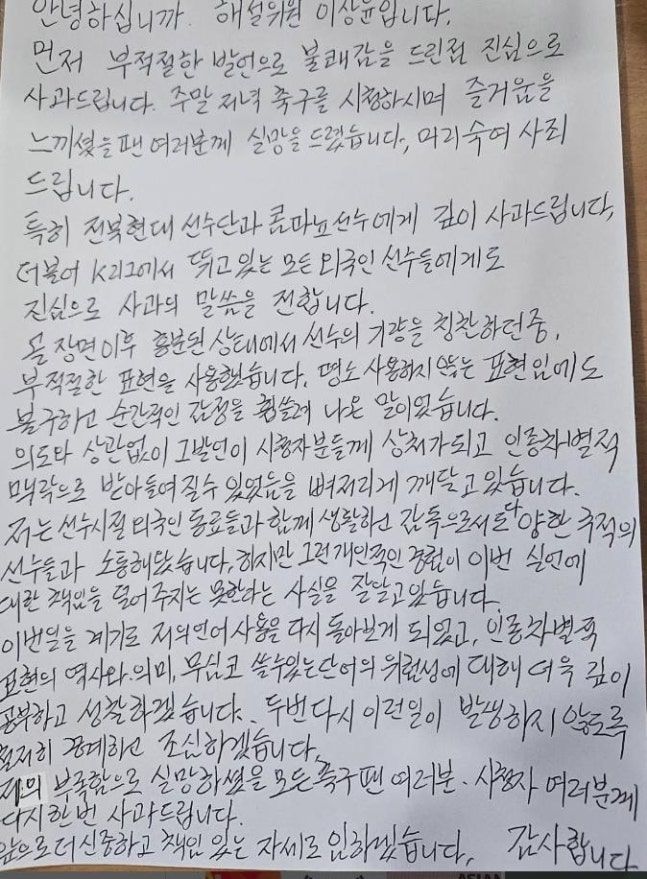 안녕하십니까. 해설위원 이상윤입니다.
먼저 부적절한 발언으로 불쾌감을 드린점 진심으로
사과드립니다. 주말 저녁 축구를 시청하시며 즐거움을
느끼셨을 팬 여러분께 실망을 드렸습니다, 머리숙여 사죄
드립니다.
특히 전북현대 선수단과 콤파뇨선수에게 깊이 사과드립니다,
더불어 K리그에서 뛰고 있는 모든 외국인 선수들에게도
진심으로 사과의 말씀을 전합니다.
골 장면이후 흥분된 상태에서 선수의 기량을 칭찬하던중,
부적절한 표현을 사용했습니다. 평소 사용하지 않는 표현임에도
불구하고 순간적인 감정을 휩쓸려 나온 말이었습니다.
의도와 상관없이 그발언이 시청자분들께 상처가되고 인종차별적
맥락으로 받아들여질수 있었음을 뼈저리게 깨닫고 있습니다.
저는 선수시절 외국인 동료들과 함께 생활하고 감독으로서도 다양한 국적의
선수들과 소통해왔습니다, 하지만 그런개인적인 경험이 이번 실언에
대한 책임을 덜어 주지는 못한다는 사실을 잘알고있습니다.
이번일을 계기로 저의언어 사용을 다시 돌아보게 되었고, 인종차별적
표현의 역사와.의미, 무심코 쓸수있는단어의 위험성에 대해 더욱 깊이
공부하고 성찰하겠습니다. 두번다시 이런일이 발생하지 않도록
철저히 경계하고 조심하겠습니다.
저의 부족함으로 실망하셨을 모든축구팬 여러분. 시청자 여러분께
다시한번 사과드립니다.
앞으로 더 신중하고 책임 있는 자세로 임하겠습니다, 감사합니다